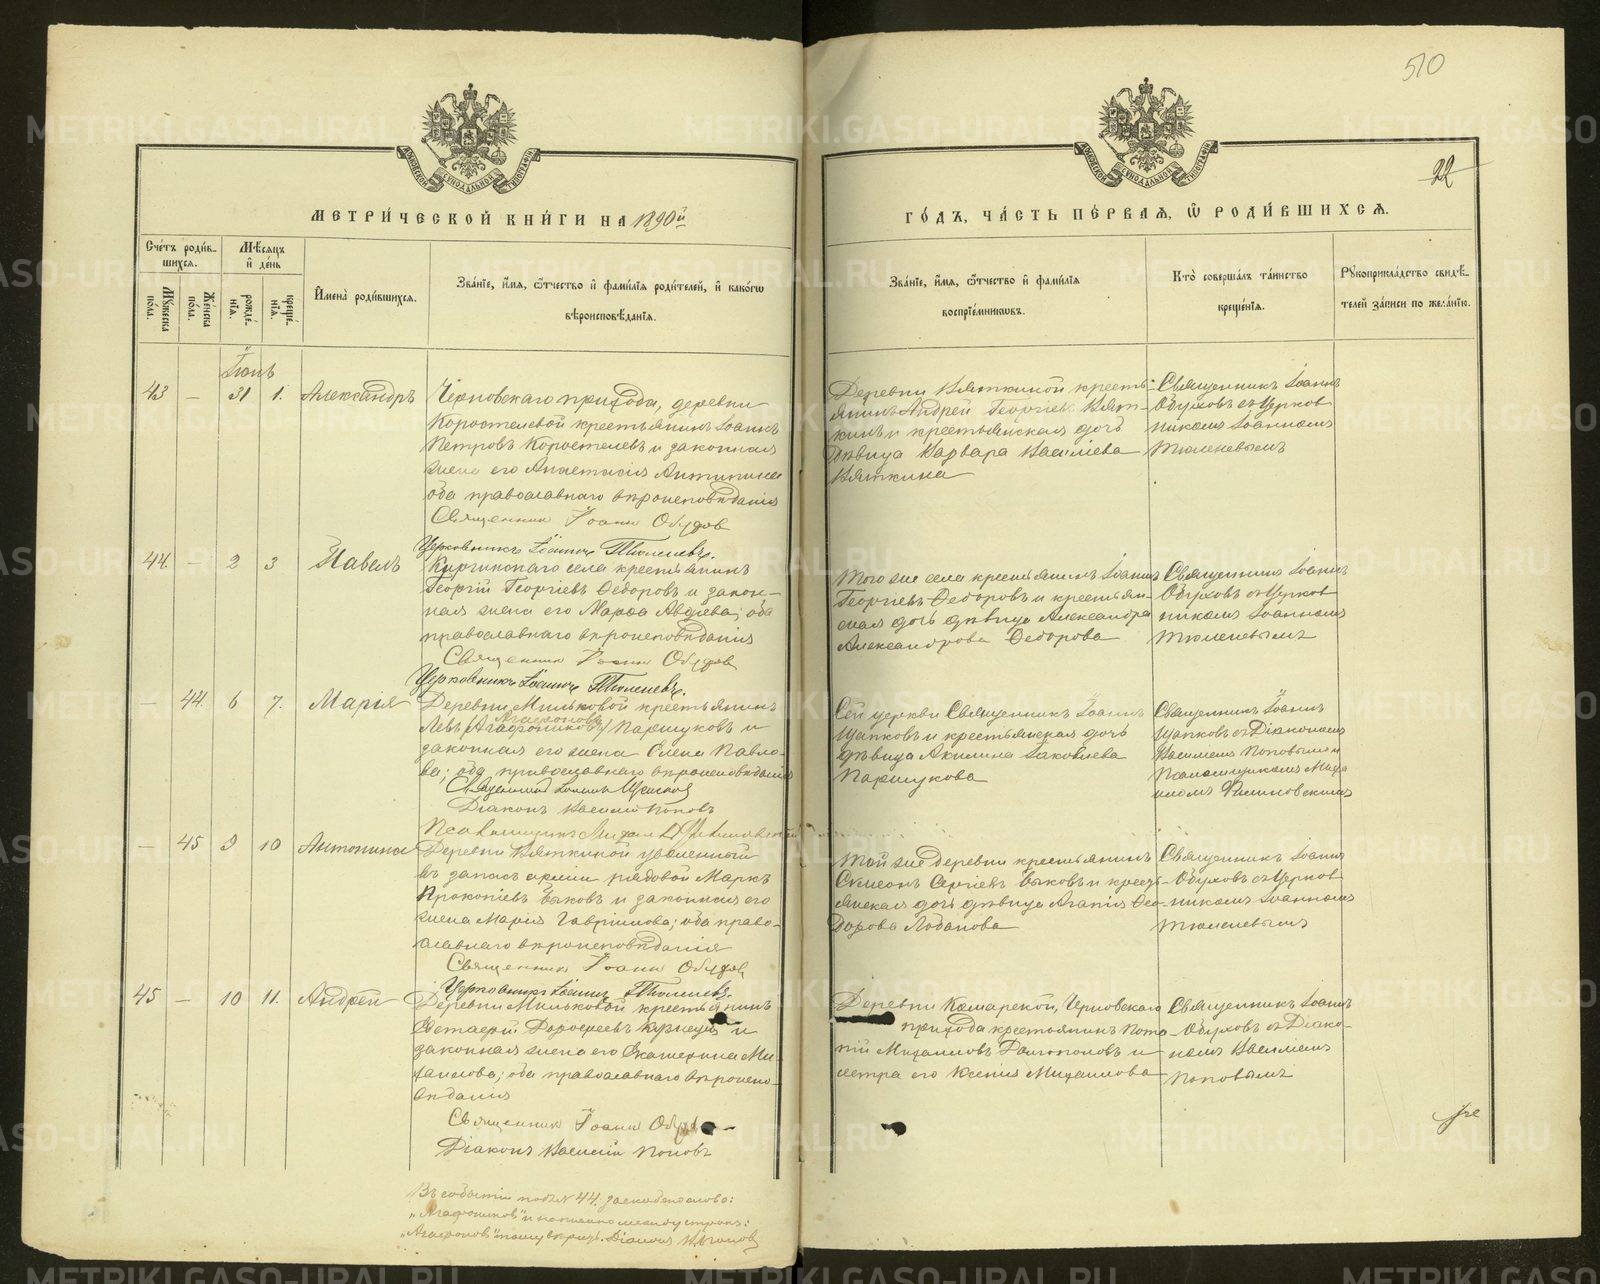 510
22
МЕТРИ́ЧЕСКОЙ КНИ́ГИ НА 1890й
ГО́ДЪ, ЧА́СТЬ ПЕ́РВАЯ, Ѿ РОДИ́ВШИХСЯ.
Сче́тъ роди́в-
шихся.
Мѣ́сяцъ
и҆ де́нь
Мꙋ́жеска
по́ла.
Же́нска
по́ла.
рожде́-
нїя.
креще́-
нїя.
И҆мена̀ роди́вшихся.
Зва́нїе, и҆́мя, ѻ҆́тчество и҆ фами́лїя роди́телей, и҆ како́гѡ
вѣроисповѣ́данїя.
Зва́нїе, и҆́мя, ѻ҆́тчество и҆ фами́лїя
воспрїе́мникѡвъ.
Кто̀ соверша́лъ та́инство
креще́нїя.
Рꙋкоприкла́дство свидѣ́-
телей за́писи по жела́нїю.
Іюнь
43 — 31 1. Александръ
Черновскаго прихода, деревни
Коростелевой крестьянинъ Іоаннъ
Петровъ Коростелевъ и законная
жена его Анастасія Антипина
оба православнаго вѣроисповѣданія
Священникъ Іоаннъ Обуховъ
Церковникъ Іоаннъ Тюленевъ.
Деревни Вяткиной кресть-
янинъ Андрей Георгіевъ Вят-
кинъ и крестьянская дочь
дѣвица Варвара Василіева
Вяткина
Священникъ Іоаннъ
Обуховъ съ Церков
никомъ Іоанномъ
Тюленевымъ
44. — 2 3 Павелъ
Киргинскаго села крестьянинъ
Георгій Георгіевъ Ѳедоровъ и закон-
ная жена его Марѳа Авдіева; оба
православнаго вѣроисповѣданія
Священникъ Іоаннъ Обуховъ
Церковникъ Іоаннъ Тюленевъ.
Того же села крестьянинъ Іоаннъ
Георгіевъ Ѳедоровъ и крестьян-
ская дочь дѣвица Александра
Александрова Ѳедорова
Священникъ Іоаннъ
Обуховъ съ Церков
никомъ Іоанномъ
Тюленевымъ
— 44. 6 7. Марія
Деревни Мильковой крестьянинъ
Агафоновъ
Левъ (Агафониковъ) Паршуковъ и
законная его жена Елена Павло-
ва; оба православнаго вѣроисповѣданія
Священникъ Іоаннъ
Діаконъ Василій Поповъ
Псаломщикъ Михаилъ
Сей церкви Священникъ Іоаннъ
и крестьянская дочь
дѣвица Акилина Іаковлева
Паршукова
Священникъ Іоаннъ
съ Діакономъ
Василіемъ Поповымъ и
Псаломщикомъ Миха
иломъ
— 45 9 10 Антонина
Деревни Вяткиной уволенный
въ запасъ арміи рядовой Маркъ
Прокопіевъ Быковъ и законная его
жена Марія Гавріилова; оба право-
славнаго вѣроисповѣданія
Священникъ Іоаннъ Обуховъ
Церковникъ Іоаннъ Тюленевъ.
Той же деревни крестьянинъ
Симеонъ Сергіевъ Быковъ и кресть-
янская дочь дѣвица Агапія Ѳео-
дорова Лобанова
Священникъ Іоаннъ
Обуховъ съ Церков
никомъ Іоанномъ
Тюленевымъ
45 — 10 11. Андрей
Деревни Мильковой крестьянинъ
Дороѳеевъ Кузнецовъ и
законная жена его Екатерина Ми-
хаилова; оба православнаго вѣроиспо-
вѣданія
Священникъ Іоаннъ
Діаконъ Василій Поповъ
Деревни Комарской, Черновскаго
прихода крестьянинъ
Михаиловъ и
сестра его Ксенія Михаилова
Священникъ Іоаннъ
Обуховъ съ Діако-
номъ Василіемъ
Поповымъ
Въ событіи подъ № 44. зачеркнуто слово:
„Агафониковъ" и написано между строкъ:
„Агафоновъ" тому вѣрить. Діаконъ В. Поповъ
METRIKI.GASO-URAL.RU